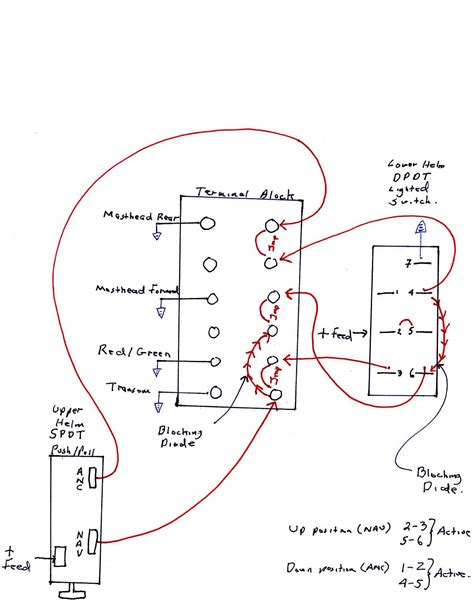 Lower Helm
DPDT
Lighted
Switch.
Terminal Block
Masthead Rear
Jmp
7
Masthead Forward
Jmp
1 4
+ Feed
2 5
Red/Green
Jmp
3 6
Transom
Blocking
Diode
Upper
Helm
SPDT
Push/Pull
ANC
NAV
+
Feed
Blocking
Diode.
Up position (NAV) 2-3
5-6 } Active
Down position (ANC) 1-2
4-5 } Active.